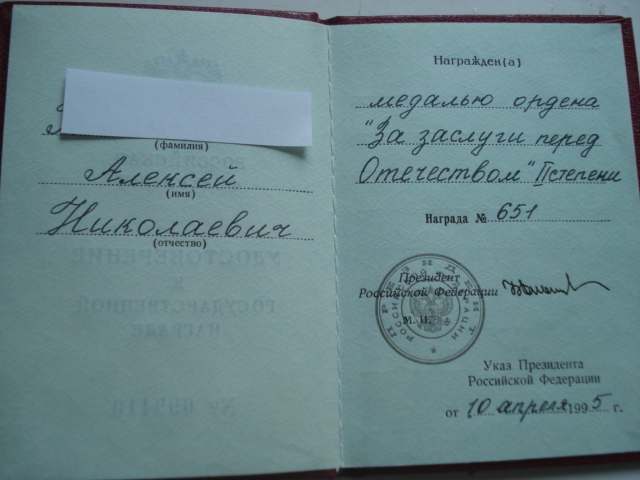 (фамилия)
Алексей
(имя)
Николаевич
(отчество)
УДОСТОВЕРЕНИЕ
К
ГОСУДАРСТВЕННОЙ
НАГРАДЕ
Награжден(а)
медалью ордена
"За заслуги перед
Отечеством" II степени
Награда № 651
ПРЕЗИДЕНТ
РОССИЙСКОЙ ФЕДЕРАЦИИ
Президент
Российской Федерации
М. П.
Указ Президента
Российской Федерации
от 10 апреля 1995 г.